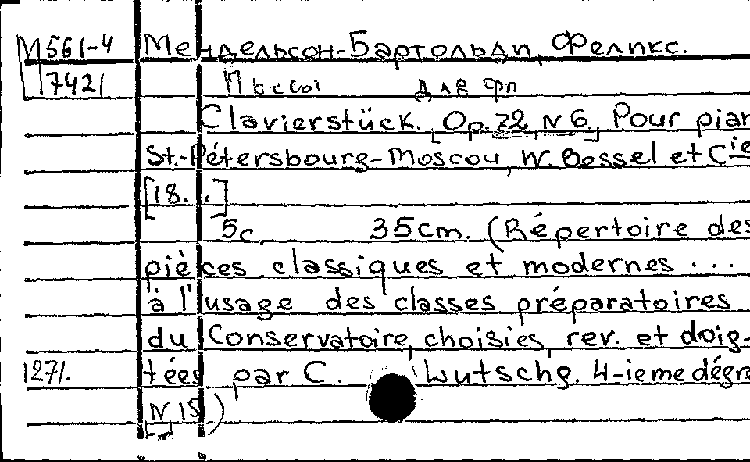 М561-4 Мендельсон-Бартольди, Феликс.
7421 Пьесы для фп
Clavierstück. [Op. 72, N 6.] Pour pian
St.-Pétersbourg-Moscou, W. Bessel et Cie
[18. .]
5c. 35cm. (Répertoire des
pièces classiques et modernes ...
à l'usage des classes préparatoires
du Conservatoire, choisies, rev. et doig-
1271. tées par C. Lutschg. 4-ieme dégre
N 15)